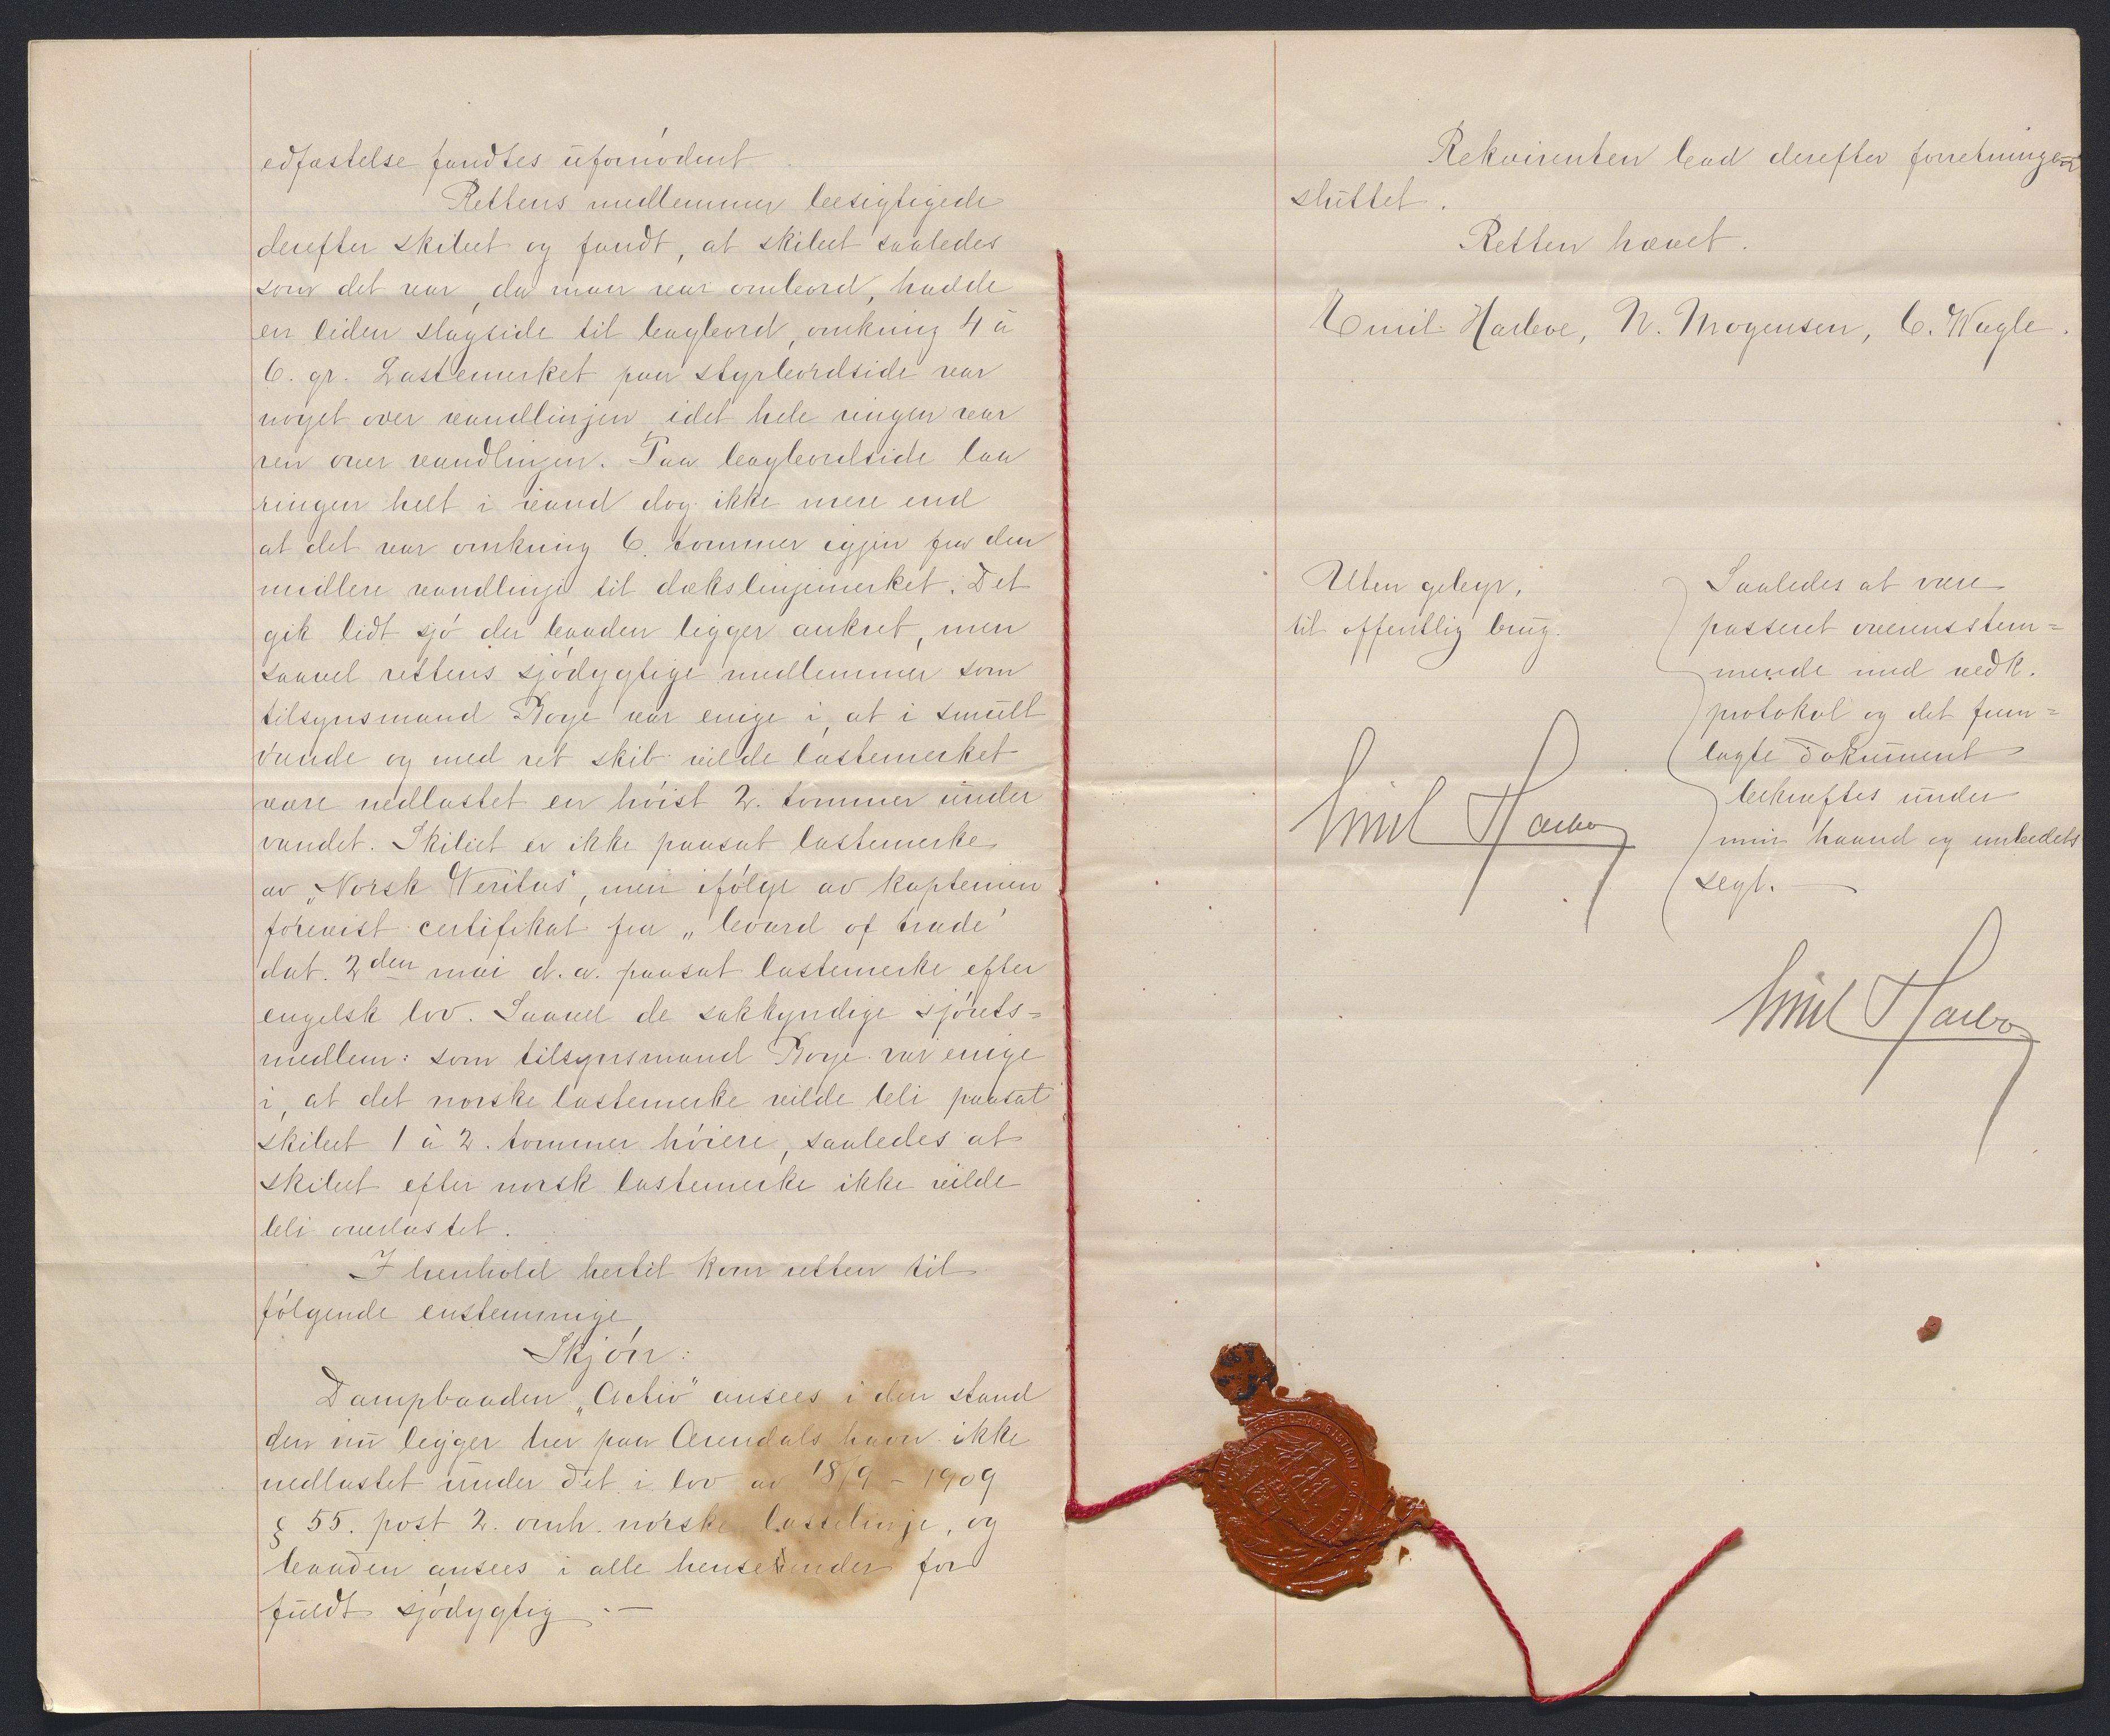 edfæstelse fandtes ufornødent.
Rettens medlemmer besigtigede
derefter skibet og fandt, at skibet saaledes
som det var, da man var ombord, hadde
en liden slagside til bagbord, omkring 4 à
6. gr. Lastemerket paa styrbordside var
noget over vandlinjen, idet hele ringen var
ren over vandlinjen. Paa bagbordside laa
ringen helt i vand dog ikke mere end
at det var omkring 6. tommer igjen fra den
midlere vandlinje til dækslinjemerket. Det
gik lidt sjø der baaden ligger ankret, men
saavel rettens sjødygtige medlemmer som
tilsynsmand Boye var enige i, at i smult
vande og med ret skib vilde lastemerket
være nedlastet en høist 2. tommer under
vandet. Skibet er ikke paasat lastemerke
av „Norsk Veritas", men ifølge av kapteinen
forevist certifikat fra „board of trade"
dat. 2den mai d.a. paasat lastemerke efter
engelsk lov. Saavel de sakkyndige sjørets=
medlem: som tilsynsmand Boye var enige
i, at det norske lastemerke vilde bli paasat
skibet 1 à 2. tommer høiere, saaledes at
skibet efter norsk lastemerke ikke vilde
bli overlastet.
I henhold hertil kom retten til
følgende enstemmige
Skjøn:
Dampbaaden „Activ" ansees i den stand
den nu ligger her paa Arendals havn ikke
nedlastet under det i lov av 18/9 - 1909
§ 55. post 2. omh. norske lastelinje, og
baaden ansees i alle henseender for
fuldt sjødygtig. —
Rekvirenten bad derefter forretningen
sluttet.
Retten hævet.
Emil Harboe, N. Mogensen, C. Wagle.
Uten gebyr,
til offentlig brug.
Emil Harboe
Saaledes at være
passeret overensstem=
mende med vedk.
protokol og det frem=
lagte dokument
bekræftes under
min haand og embedets
segl. —
Emil Harboe